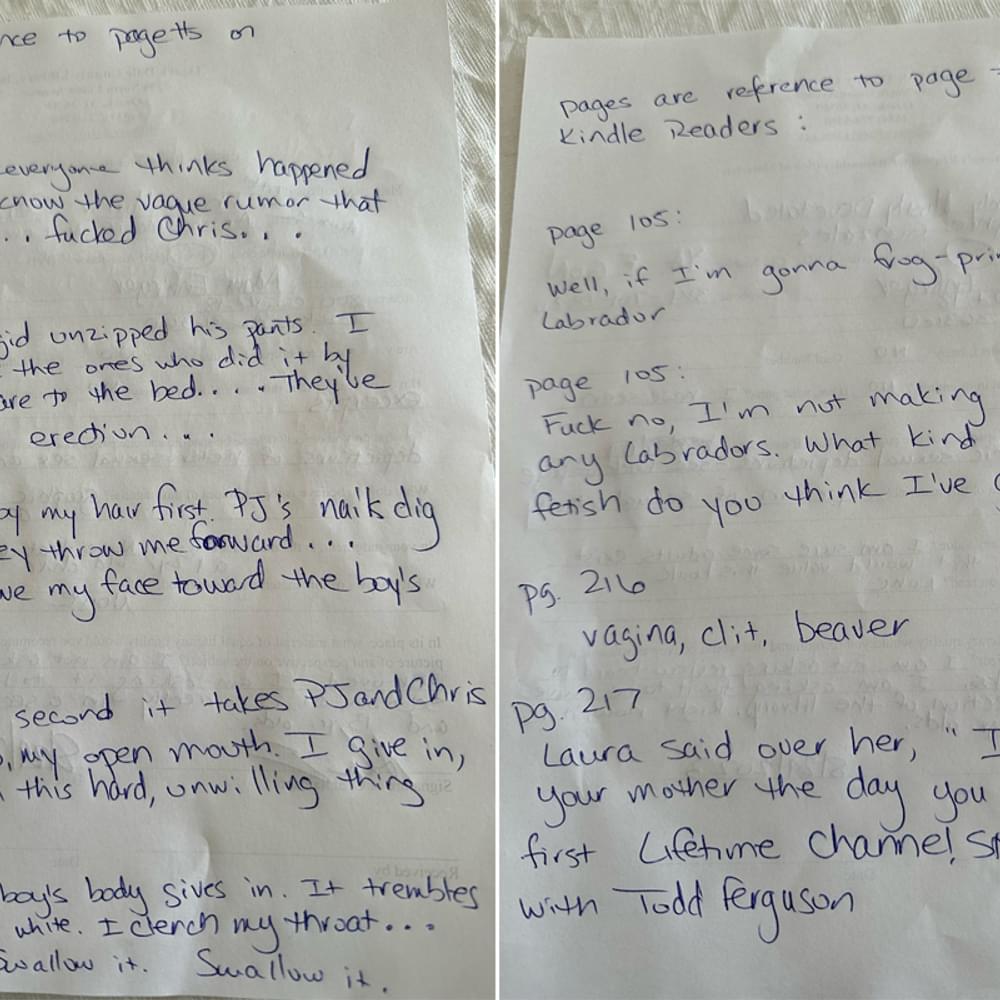 nce to page #s on
everyone thinks happened
know the vague rumor that
. . fucked Chris. . .
gid unzipped his pants. I
the ones who did it by
are to the bed. . . . They've
erection . . .
by my hair first. PJ's nails dig
ey throw me forward . . .
ve my face toward the boy's
second it takes PJ and Chris
, my open mouth. I give in,
this hard, unwilling thing
boy's body gives in. It trembles
white. I clench my throat . . .
Swallow it. Swallow it.
pages are reference to page
Kindle Readers :
page 105:
Well, if I'm gonna frog-prin
Labrador
page 105:
Fuck no, I'm not making
any Labradors. What kind
fetish do you think I've
pg. 216
vagina, clit, beaver
pg. 217
Laura said over her, " I
your mother the day you
first Lifetime Channel, S
with Todd Ferguson